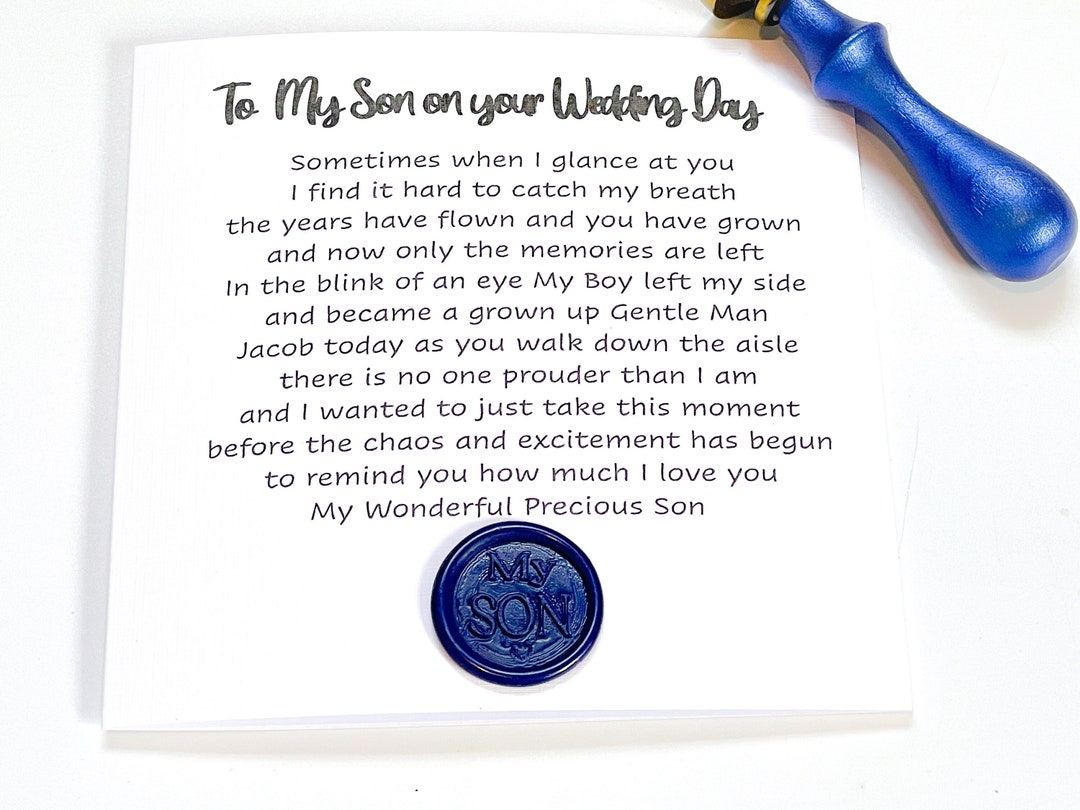 To My Son on your Wedding Day
Sometimes when I glance at you
I find it hard to catch my breath
the years have flown and you have grown
and now only the memories are left
In the blink of an eye My Boy left my side
and became a grown up Gentle Man
Jacob today as you walk down the aisle
there is no one prouder than I am
and I wanted to just take this moment
before the chaos and excitement has begun
to remind you how much I love you
My Wonderful Precious Son
My
SON